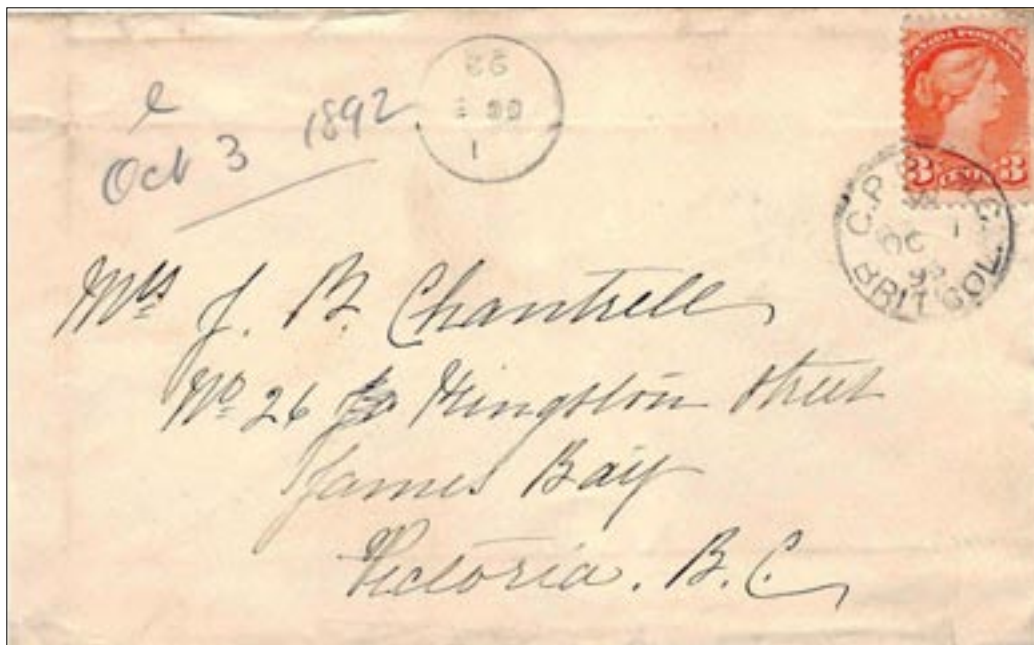 Oct 3 1892
CANADA POSTAGE
3 CENTS 3
C.P.
OC 1
BRIT. COL.
Mrs J. B. Chantrell
No 26 Kingston Street
James Bay
Victoria. B.C.